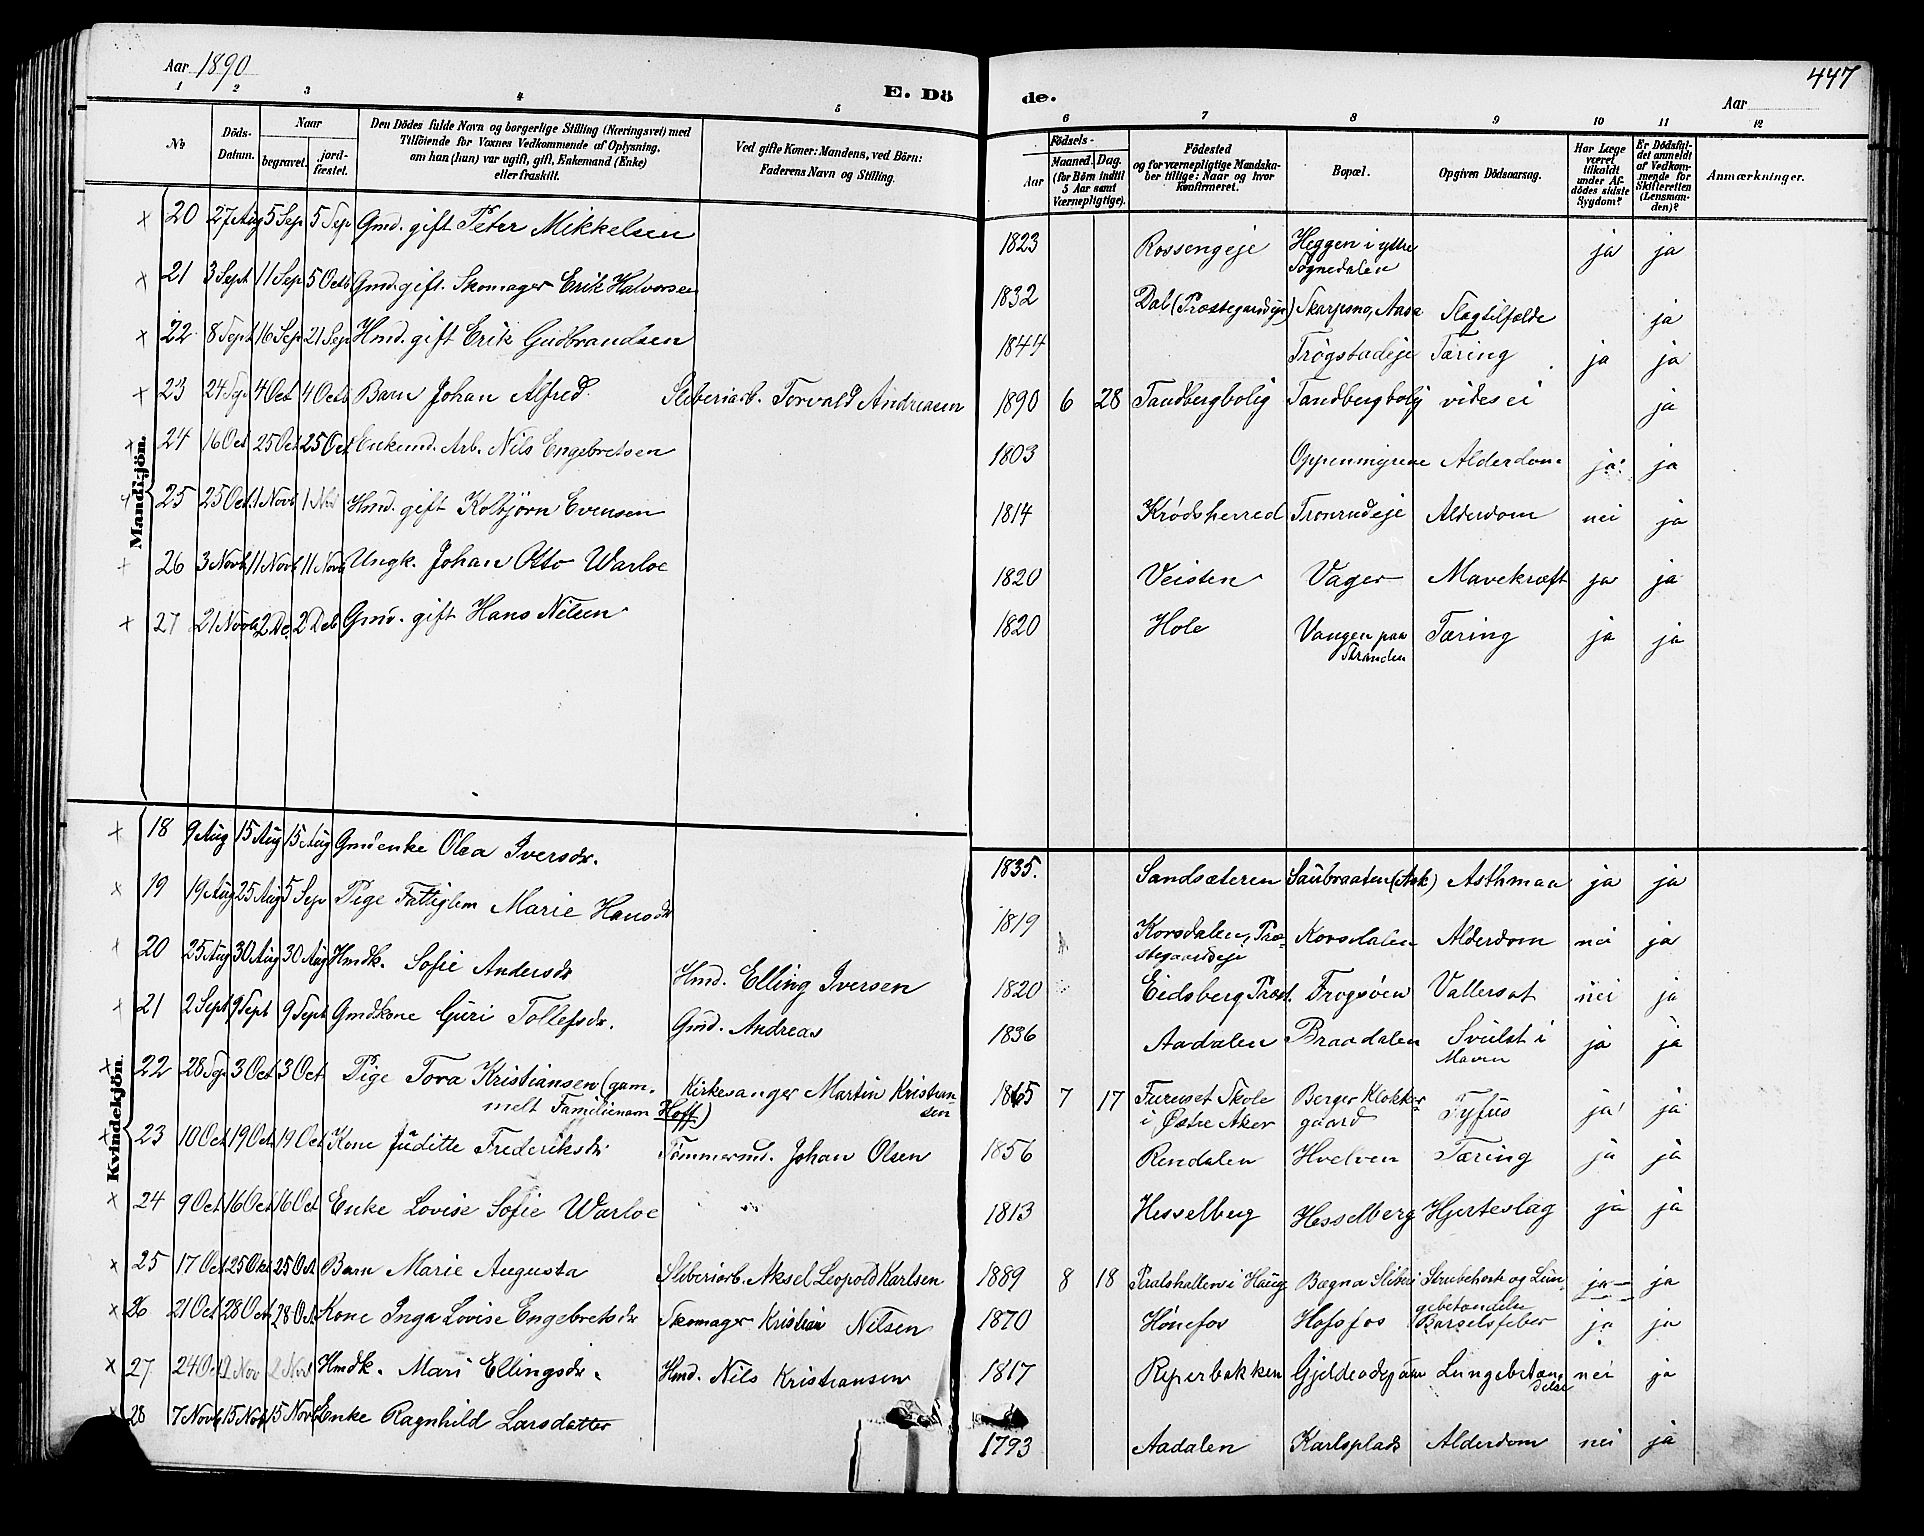 Aar 1890
E. Dö de.
Aar
447
1 2 3 4 5 6 7 8 9 10 11 12
No
Döds-Datum.
Naar
begravet.
jord-fæstet.
Den Dödes fulde Navn og borgerlige Stilling (Næringsvei) med
Tilföiende for Voxnes Vedkommende af Oplysning,
om han (hun) var ugift, gift, Enkemand (Enke)
eller fraskilt.
Ved gifte Koner: Mandens, ved Börn:
Faderens Navn og Stilling.
Födsels-
Aar
Maaned. Dag.
(for Börn indtil
5 Aar samt
Værnepligtige).
Födested
og for værnepligtige Mandska-
ber tillige: Naar og hvor
Konfirmeret.
Bopæl.
Opgiven Dödsaarsag.
Har Læge
været
tilkaldt
under Af-
dödes sidste
Sygdom?
Er Dödsfal-
det anmeldt
af Vedkom-
mende for
Skifteretten
(Lensman-
den)?
Anmærkninger.
Mandkjön.
x 20 27 Aug 5 Sep 5 Sep Gmd. gift Peter Mikkelsen 1823 Rossengeje Heggen i ytre Sognedalen ja ja
x 21 3 Sept 11 Sep 5 Octb Gmd. gift. Skomager Erik Halvorsen 1832 Dal (Præstegaardeje) Skarpsno, Aasa Slagtilfælde ja
x 22 8 Sept 16 Sep 21 Sep Hmd. gift Erik Gudbrandsen 1844 Trøgstadeje Tæring ja ja
x 23 24 Sep 4 Oct 4 Octb Barn Johan Alfred. Sliberiarb. Torvald Andreasen 1890 6 28 Tandbergbolig Tandbergbolig vides ei ja
x 24 16 Oct 25 Oct 25 Oct Enkemd. Arb. Nils Engebretsen 1803 Oppenmyrene Alderdom ja ja
x 25 25 Oct 1 Novb 1 Nov Hmd. gift Kolbjörn Evensen 1814 Krødsherred Tronrudeje Alderdom nei ja
x 26 3 Novb 11 Novb 11 Novb Ungk. Johan Otto Warloe 1820 Veisten Vager Mavekræft ja ja
x 27 21 Novb 2 De. 2 Deb Gmd. gift Hans Nilsen 1820 Hole Vangen paa Stranden Tæring ja ja
Kvindekjön.
x 18 9 Aug 15 Aug 15 Aug Gmdenke Olea Iversdr. 1835. Sandsæteren Saubraaten (Ask) Asthmaa ja ja
x 19 19 Aug 25 Aug 5 Sep Pige Fattiglem Marie Hansdr 1819 Korsdalen, Præstegaardeje Korsdalen Alderdom nei ja
x 20 25 Aug 30 Aug 30 Aug Hmdk. Sofie Andersdr Hmd. Elling Iversen 1820 Eidsberg Præst. Frogsøen Vattersot nei ja
x 21 2 Sept 9 Sept 9 Sept Gmdkone Guri Tollefsdr. Gmd. Andreas 1836 Aadalen Braadalen Svulst i Maven ja ja
x 22 28 Sep 3 Oct 3 Oct Pige Tora Kristiansen (gam-
melt Familienam Hoff) Kirkesanger Martin Kristiansen 1865 7 17 Furuset Skole i Østre Aker Berger Klokkergaard Tyfus ja ja
x 23 10 Oct 19 Oct 19 Oct Kone Juditte Frederiksdr Tömmermd. Johan Olsen 1856 Rendalen Hvelven Tæring ja ja
x 24 9 Oct 16 Oct 16 Oct Enke Lovise Sofie Warloe 1813 Hesselberg Hesselberg Hjerteslag ja ja
x 25 17 Oct 25 Okt 25 Oct Barn Marie Augusta Sliberiarb. Aksel Leopold Karlsen 1889 8 18 i Haug Bægna Sliberi Strubehost og Lungebetændelse ja ja
x 26 21 Oct 28 Oct 28 Oct. Kone Inga Lovise Engebretsdr Skomager Kristian Nilsen 1870 Hønefos Hofsfos Barselsfeber ja ja
x 27 24 Oct 2 Nov 2 Nov Hmdk. Mari Ellingsdr. Hmd. Nils Kristiansen 1817 Reperbakken Gjeldenodegaarn Lungebetændelse nei ja
x 28 7 Novb 15 Novb 15 Novb Enke Ragnhild Larsdatter 1793 Aadalen Karlsplads Alderdom nei ja